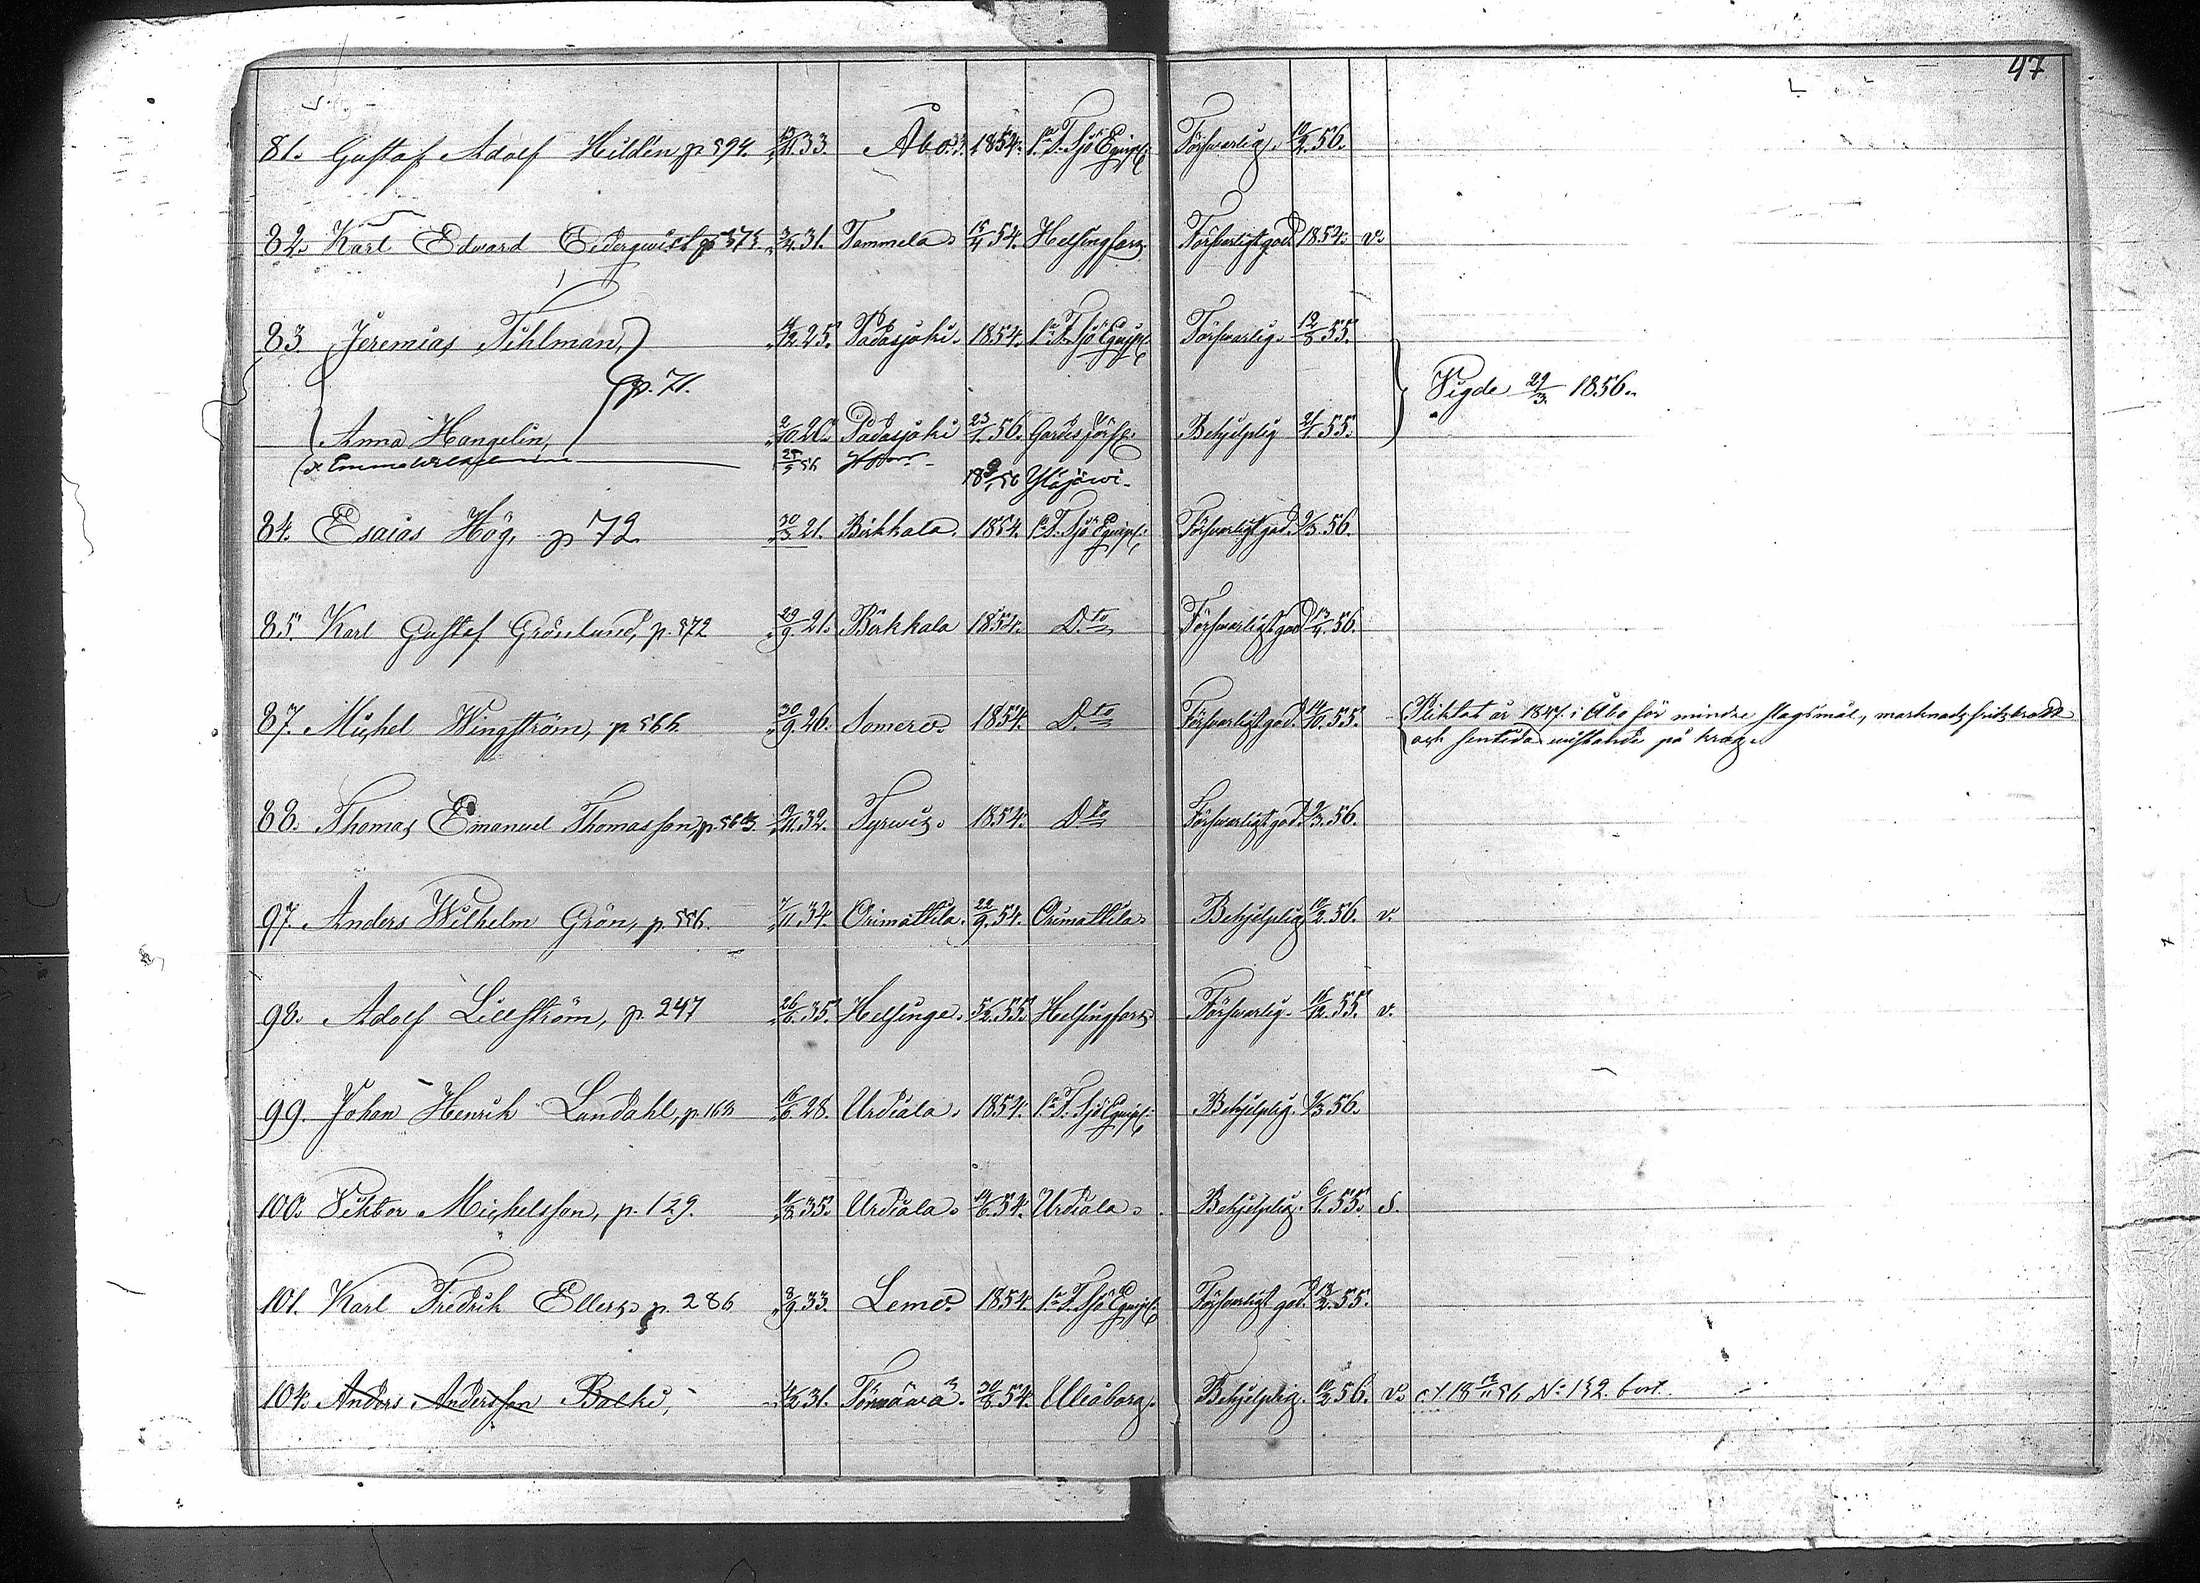 47
81. Gustaf Adolf Hildén p 594. 33. Åbo. 1854. 1sta F. Sjö Equip. Försvarlig. 56.
82. Karl Edward Cederqvist p 575. 31. Tammela. 15/4 54. Helsingfors. Försvarligt god 1854. v.
83. Jeremias Tihlman, 25. Padasjoki. 1854. 1sta F. Sjö Equip. Försvarlig. 55.
p. 71. Vigde 29/3. 1856.
Anna Hangelin, Padasjoki 23/1. 56. Behjelplig 55.
d. Emma 56 18 56 Ylöjärvi.
84. Esaias Hög, p 72 30/3 21. Birkkala. 1854. 1sta F. Sjö Equip. Försvarligt god. 9/3. 56.
85. Karl Gustaf Grönlund, p. 572 29/9. 21. Birkkala 1854. D:to Försvarligt god 13/4. 56.
87. Michel Wingström, p 566. 30/9. 26. Somero. 1854. D:to Försvarligt god. 14/10. 55. Pliktat år 1847. i Åbo för mindre slagsmål, marknads fridsbrott
och sentida vistande på krog.
88. Thomas Emanuel Thomasson, p. 32. Tyrvis. 1854. D:to Försvarligt god. 9/3. 56.
97. Anders Wilhelm Grön, p. 556. 7/11. 34. Orimattila. 22/9. 54. Orimattila. Behjelplig 56. v.
98. Adolf Lillström, p. 247 26/6. 35. Helsinge. 5/2. 55. Helsingfors. Försvarlig. 55. v.
99. Johan Henrik Landahl, p. 16/6. 28. Urdiala. 1854. 1sta F. Sjö Equip. Behjelplig. 9/3 56.
100. Viktor Michelsson, p. 129. 35. Urdiala. 14/6. 54. Urdiala. Behjelplig. 6/1. 55. S.
101. Karl Fredrik Ellers p. 286 8/9. 33. Lemo. 1854. 1sta F. Sjö Equip. Försvarligt god. 55.
104. Anders Andersson Balki, 31. 54. Uleåborg. Behjelplig. 56. v. 18 56 No 152 bort.